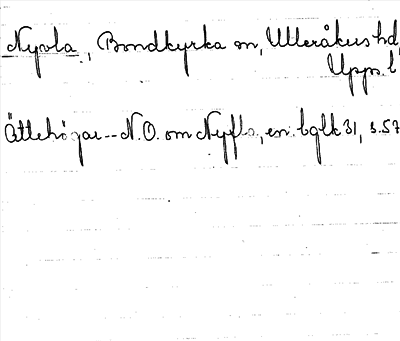 Nyvla, Bondkyrka sn, Ulleråkers hd,
Upps. l
Ättehögar -- N.O. om Nyfla, en. bglk 31, s. 57